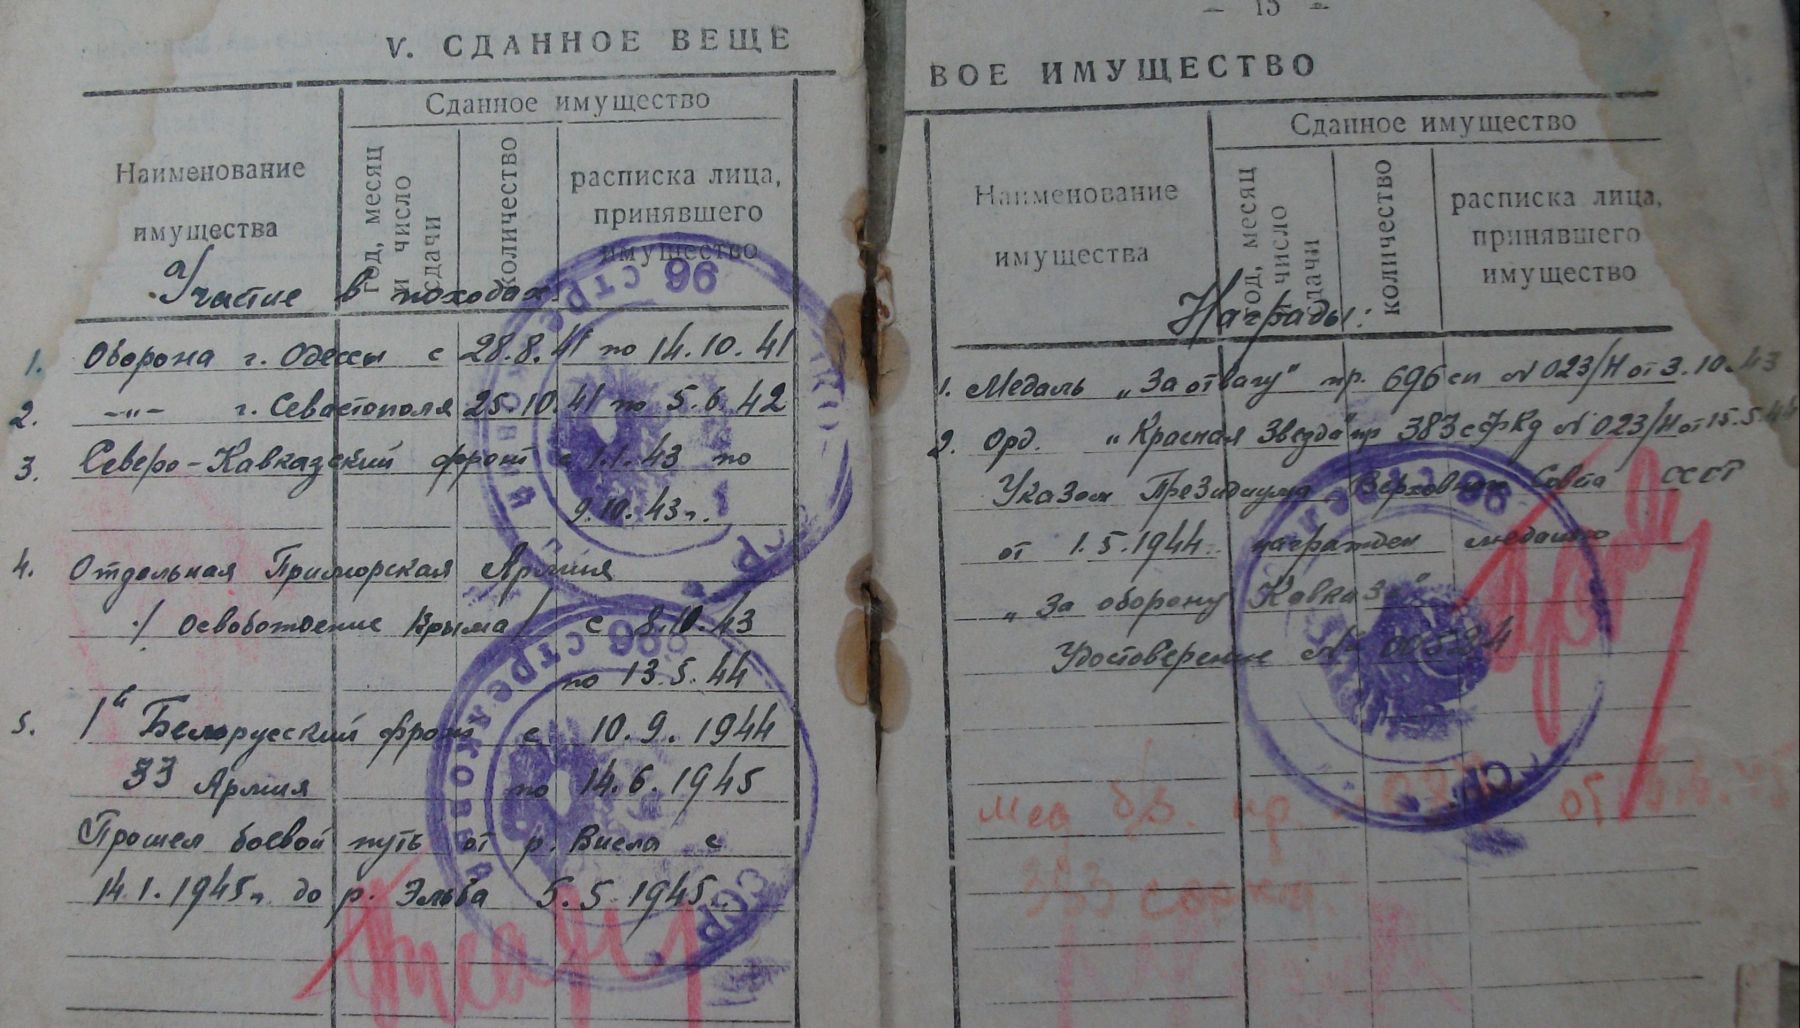 V. СДАННОЕ ВЕЩЕ
Наименование
имущества
Сданное имущество
год, месяц
и число
сдачи
количество
расписка лица,
принявшего
имущество
Участие в походах
1. Оборона г. Одессы с 28.8.41 по 14.10.41
2. -"- г. Севастополя 25.10.41 по 5.6.42
3. Северо-Кавказский фронт с 1.1.43 по
9.10.43г.
4. Отдельная Приморская Армия
/Освобождение Крыма/ с 8.10.43
по 13.5.44
5. 1й Белорусский фронт с 10.9.1944
33 Армия по 14.6.1945
Прошел боевой путь от р. Висла с
14.1.1945г. до р. Эльба 5.5.1945г.
96 стрелковый
СССР
96 стрелковый
СССР
— 15 —
ВОЕ ИМУЩЕСТВО
Наименование
имущества
Сданное имущество
год, месяц
и число
сдачи
количество
расписка лица,
принявшего
имущество
Награды:
1. Медаль „За отвагу" пр. 696 сп №023/Н от 3.10.43
2. Орд. „Красная Звезда" пр 383 сфкд №023/Н от 15.5.44
Указом Президиума Верховного Совета СССР
от 1.5.1944 награжден медалью
„За оборону Кавказа"
Удостоверение №
96
СССР
Мед б/з. пр. от
383